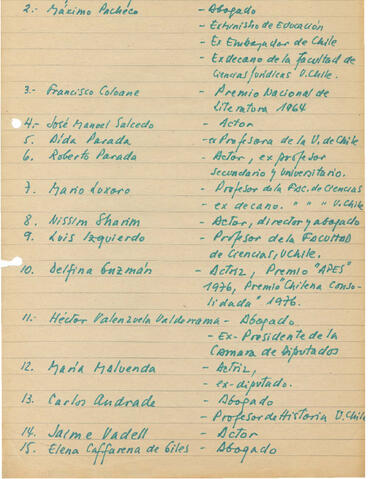 2.- Máximo Pacheco - Abogado
- Exministro de Educación
- Ex Embajador de Chile
- Ex decano de la Facultad de
Ciencias Jurídicas U. Chile.
3.- Francisco Coloane - Premio Nacional de
Literatura 1964
4.- José Manuel Salcedo - Actor
5. Dída Parada - ex Profesora de la U. de Chile
6. Roberto Parada - Actor, ex profesor
secundario y universitario.
7. Mario Luxoro - Profesor de la Fac. de Ciencias
- ex decano. " " " U. Chile
8. Nissim Sharim - Actor, director y abogado
9. Luis Izquierdo - Profesor de la Facultad
de Ciencias, U Chile.
10. Delfina Guzmán - Actriz, Premio "APES"
1976, Premio "Chilena Conso-
lidada" 1976.
11.- Héctor Valenzuela Valderrama - Abogado
- Ex-Presidente de la
Cámara de Diputados
12. María Maluenda - Actriz,
- ex-diputado.
13. Carlos Andrade - Abogado
- Profesor de Historia U. Chile
14. Jaime Vadell - Actor
15. Elena Caffarena de Giles - Abogado